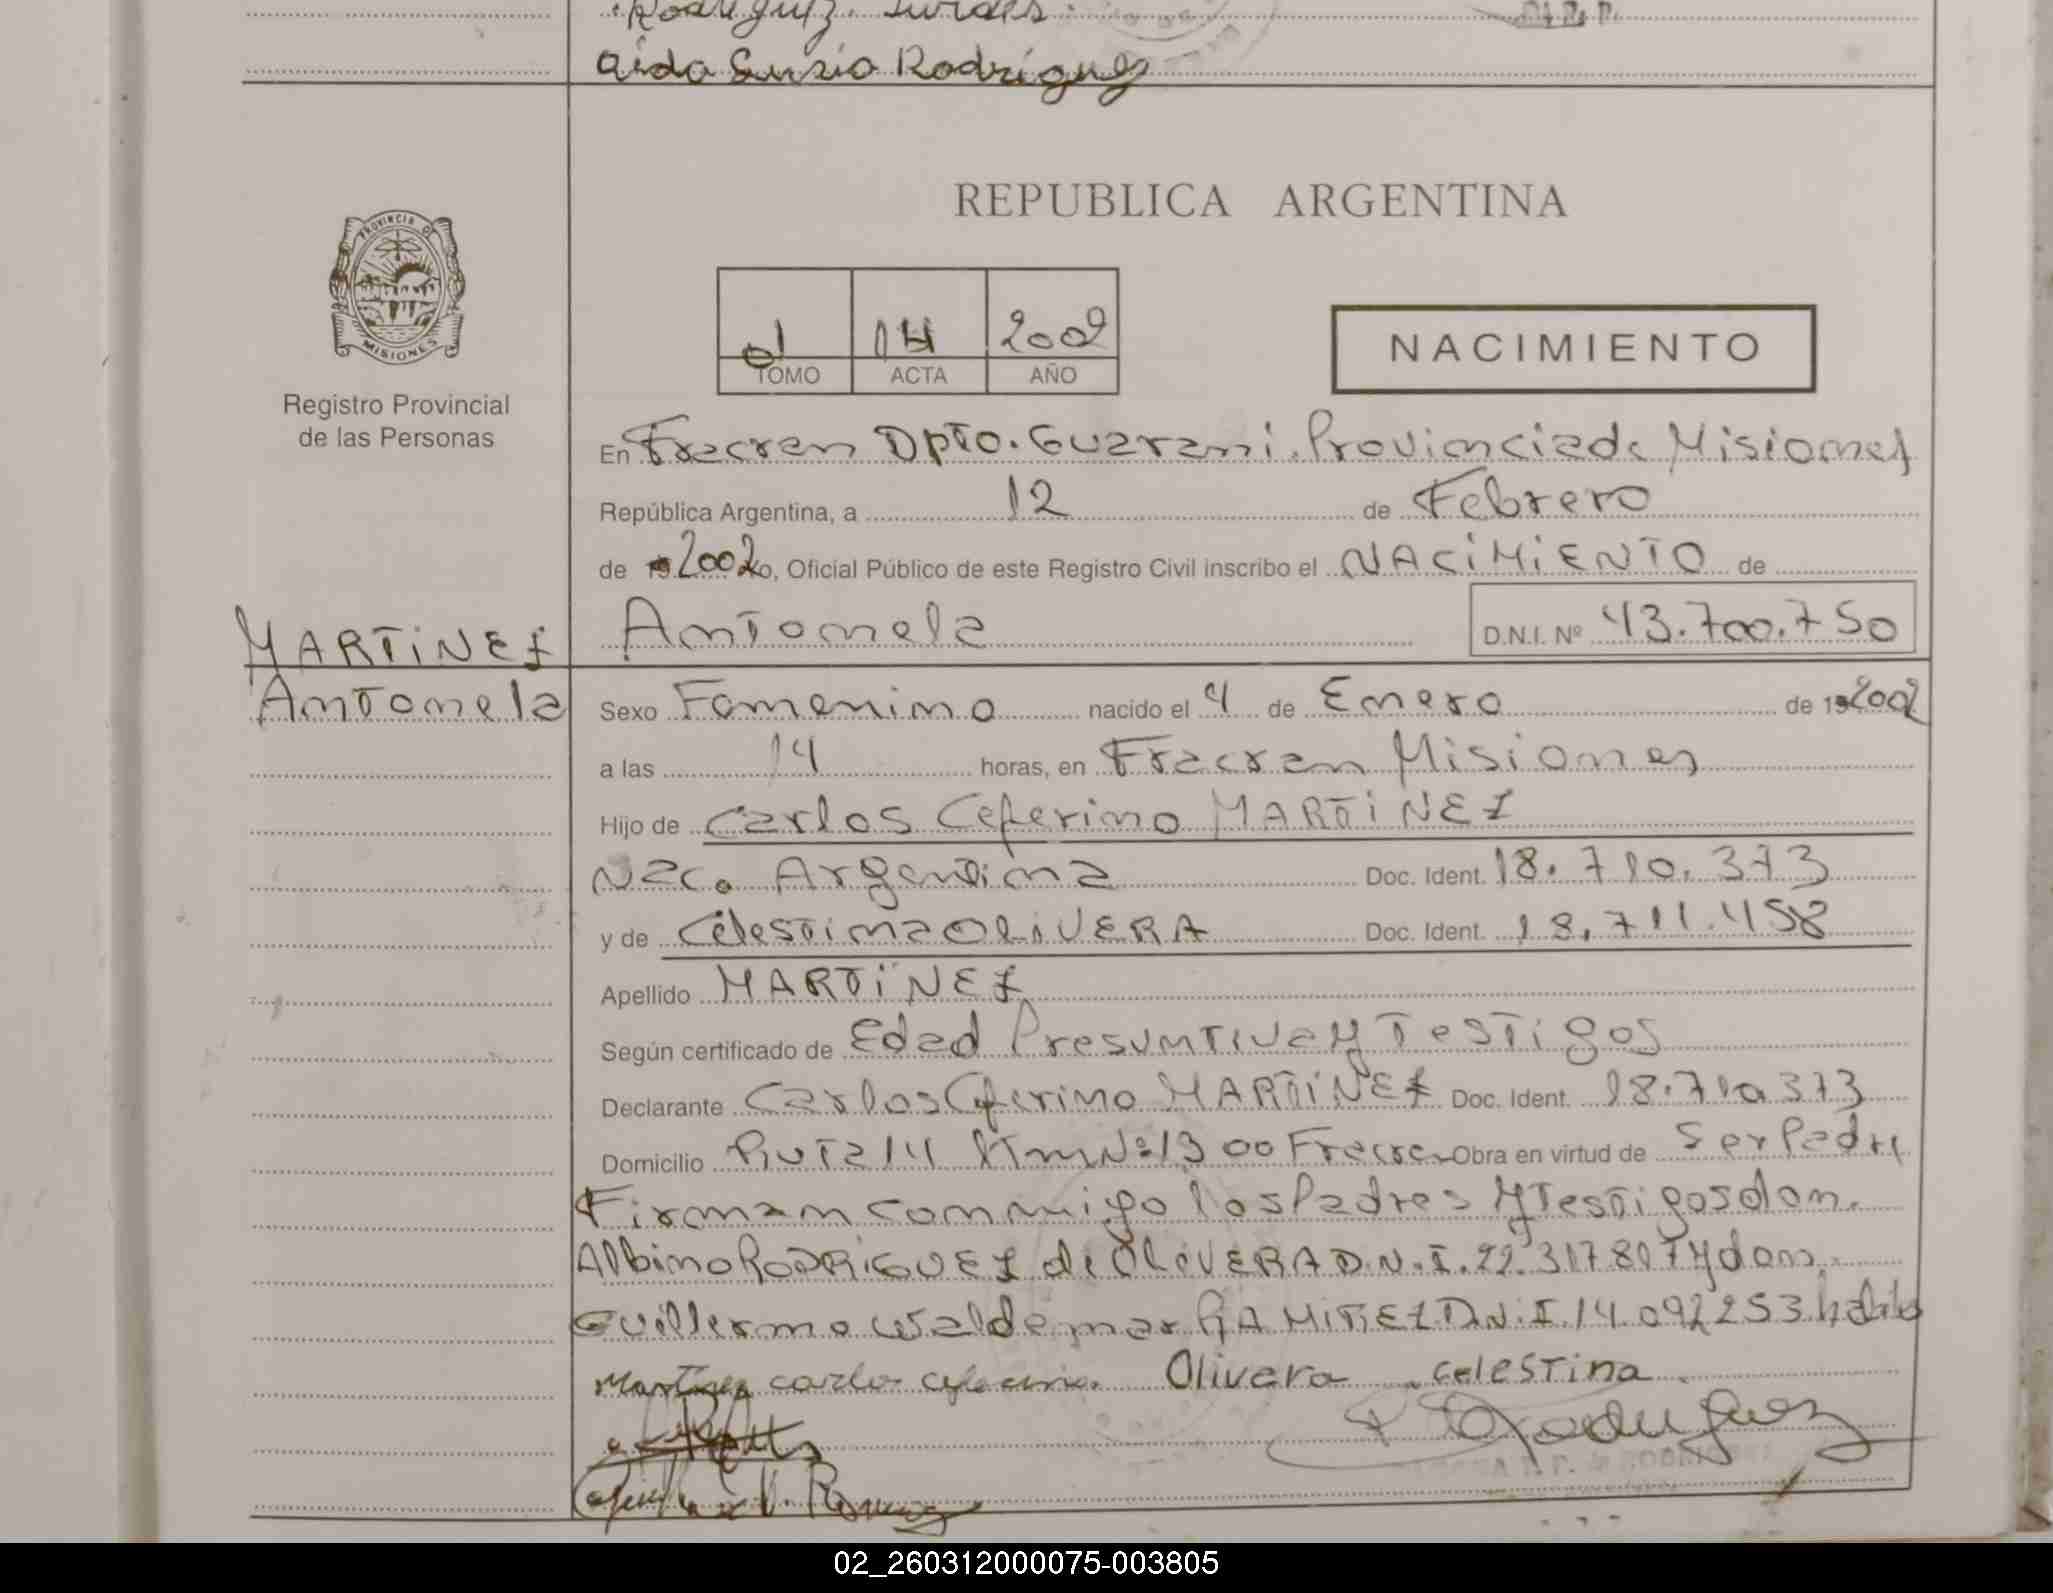 Rodriguez
Aida Suzio Rodriguez
REPUBLICA ARGENTINA
PROVINCIA DE
MISIONES
Registro Provincial
de las Personas
01 14 2002
TOMO ACTA AÑO
NACIMIENTO
En Fracran Dpto. Guarani. Provincia de Misiones
República Argentina, a 12 de Febrero
de 2002 yo, Oficial Público de este Registro Civil inscribo el NACIMIENTO de
Antonela D.N.I. Nº 43.700.750
MARTINEZ
Antonela
Sexo Femenino nacido el 4 de Enero de 2002
a las 14 horas, en Fracran Misiones
Hijo de Carlos Ceferino MARTINEZ
Nac. Argentina Doc. Ident. 18.710.373
y de Celestina OLIVERA Doc. Ident. 18.711.458
Apellido MARTINEZ
Según certificado de Edad Presuntiva y Testigos
Declarante Carlos Ceferino MARTINEZ Doc. Ident. 18.710.373
Domicilio Ruta 14 Km Nº 1300 Fracran Obra en virtud de Ser Padre
Firman conmigo los Padres y Testigos don.
Albino RODRIGUEZ de OLIVERA D.N.I. 22.317.807 y don.
Guillermo Waldemar RAMIREZ D.N.I. 14.092253.
Martinez carlos ceferino. Olivera celestina.
Rodriguez
02_260312000075-003805